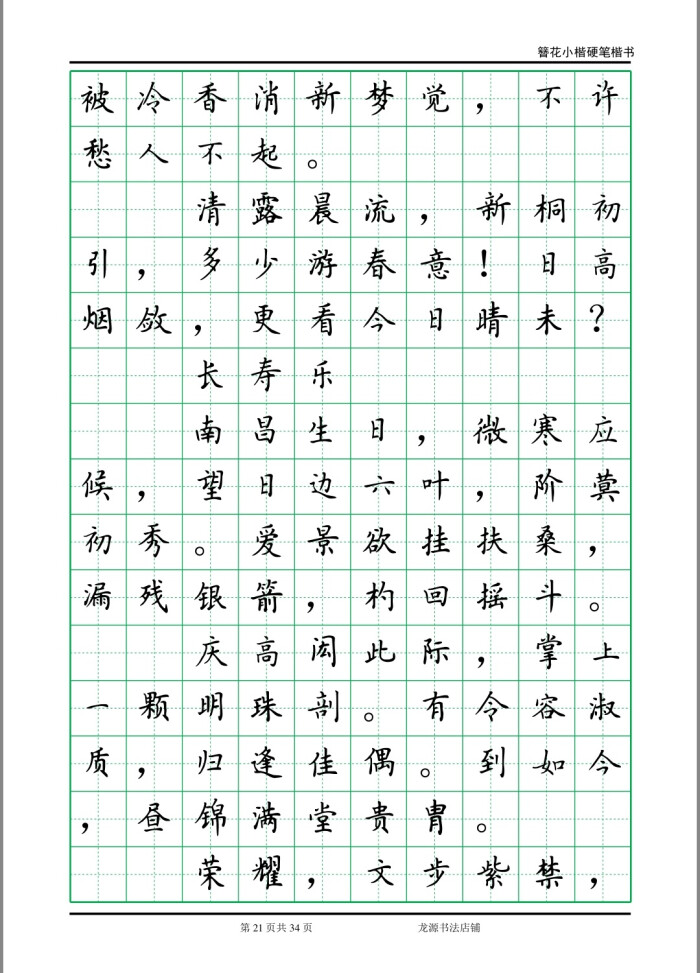 簪花小楷硬笔楷书
被冷香消新梦觉，不许
愁人不起。
清露晨流，新桐初
引，多少游春意！日高
烟敛，更看今日晴未？
长寿乐
南昌生日，微寒应
候，望日边六叶，阶蓂
初秀。爱景欲挂扶桑，
漏残银箭，杓回摇斗。
庆高闳此际，掌上
一颗明珠剖。有令容淑
质，归逢佳偶。到如今
，昼锦满堂贵胄。
荣耀，文步紫禁，
第 21 页共 34 页 龙源书法店铺